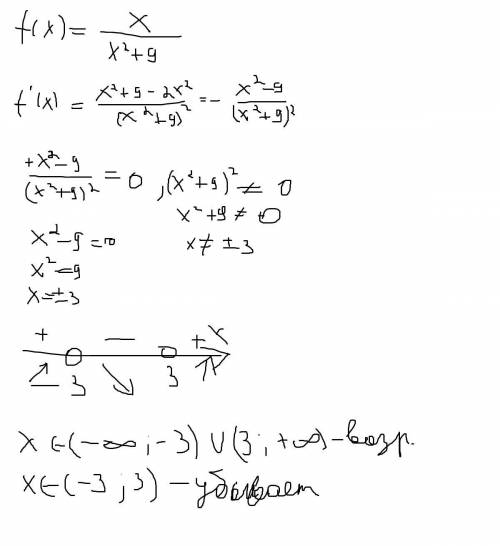 f(x) = x / x²+9
f'(x) = x²+9-2x² / (x²+9)² = - x²-9 / (x²+9)²
+x²-9 / (x²+9)² = 0 , (x²+9)² ≠ 0
x²+9 ≠ +0
x²-9 = 0 x ≠ ±3
x² = 9
x = ±3
+ — + x
3 3
x ∈ (-∞ ; -3) ∪ (3 ; +∞) - возр.
x ∈ (-3 ; 3) - убывает